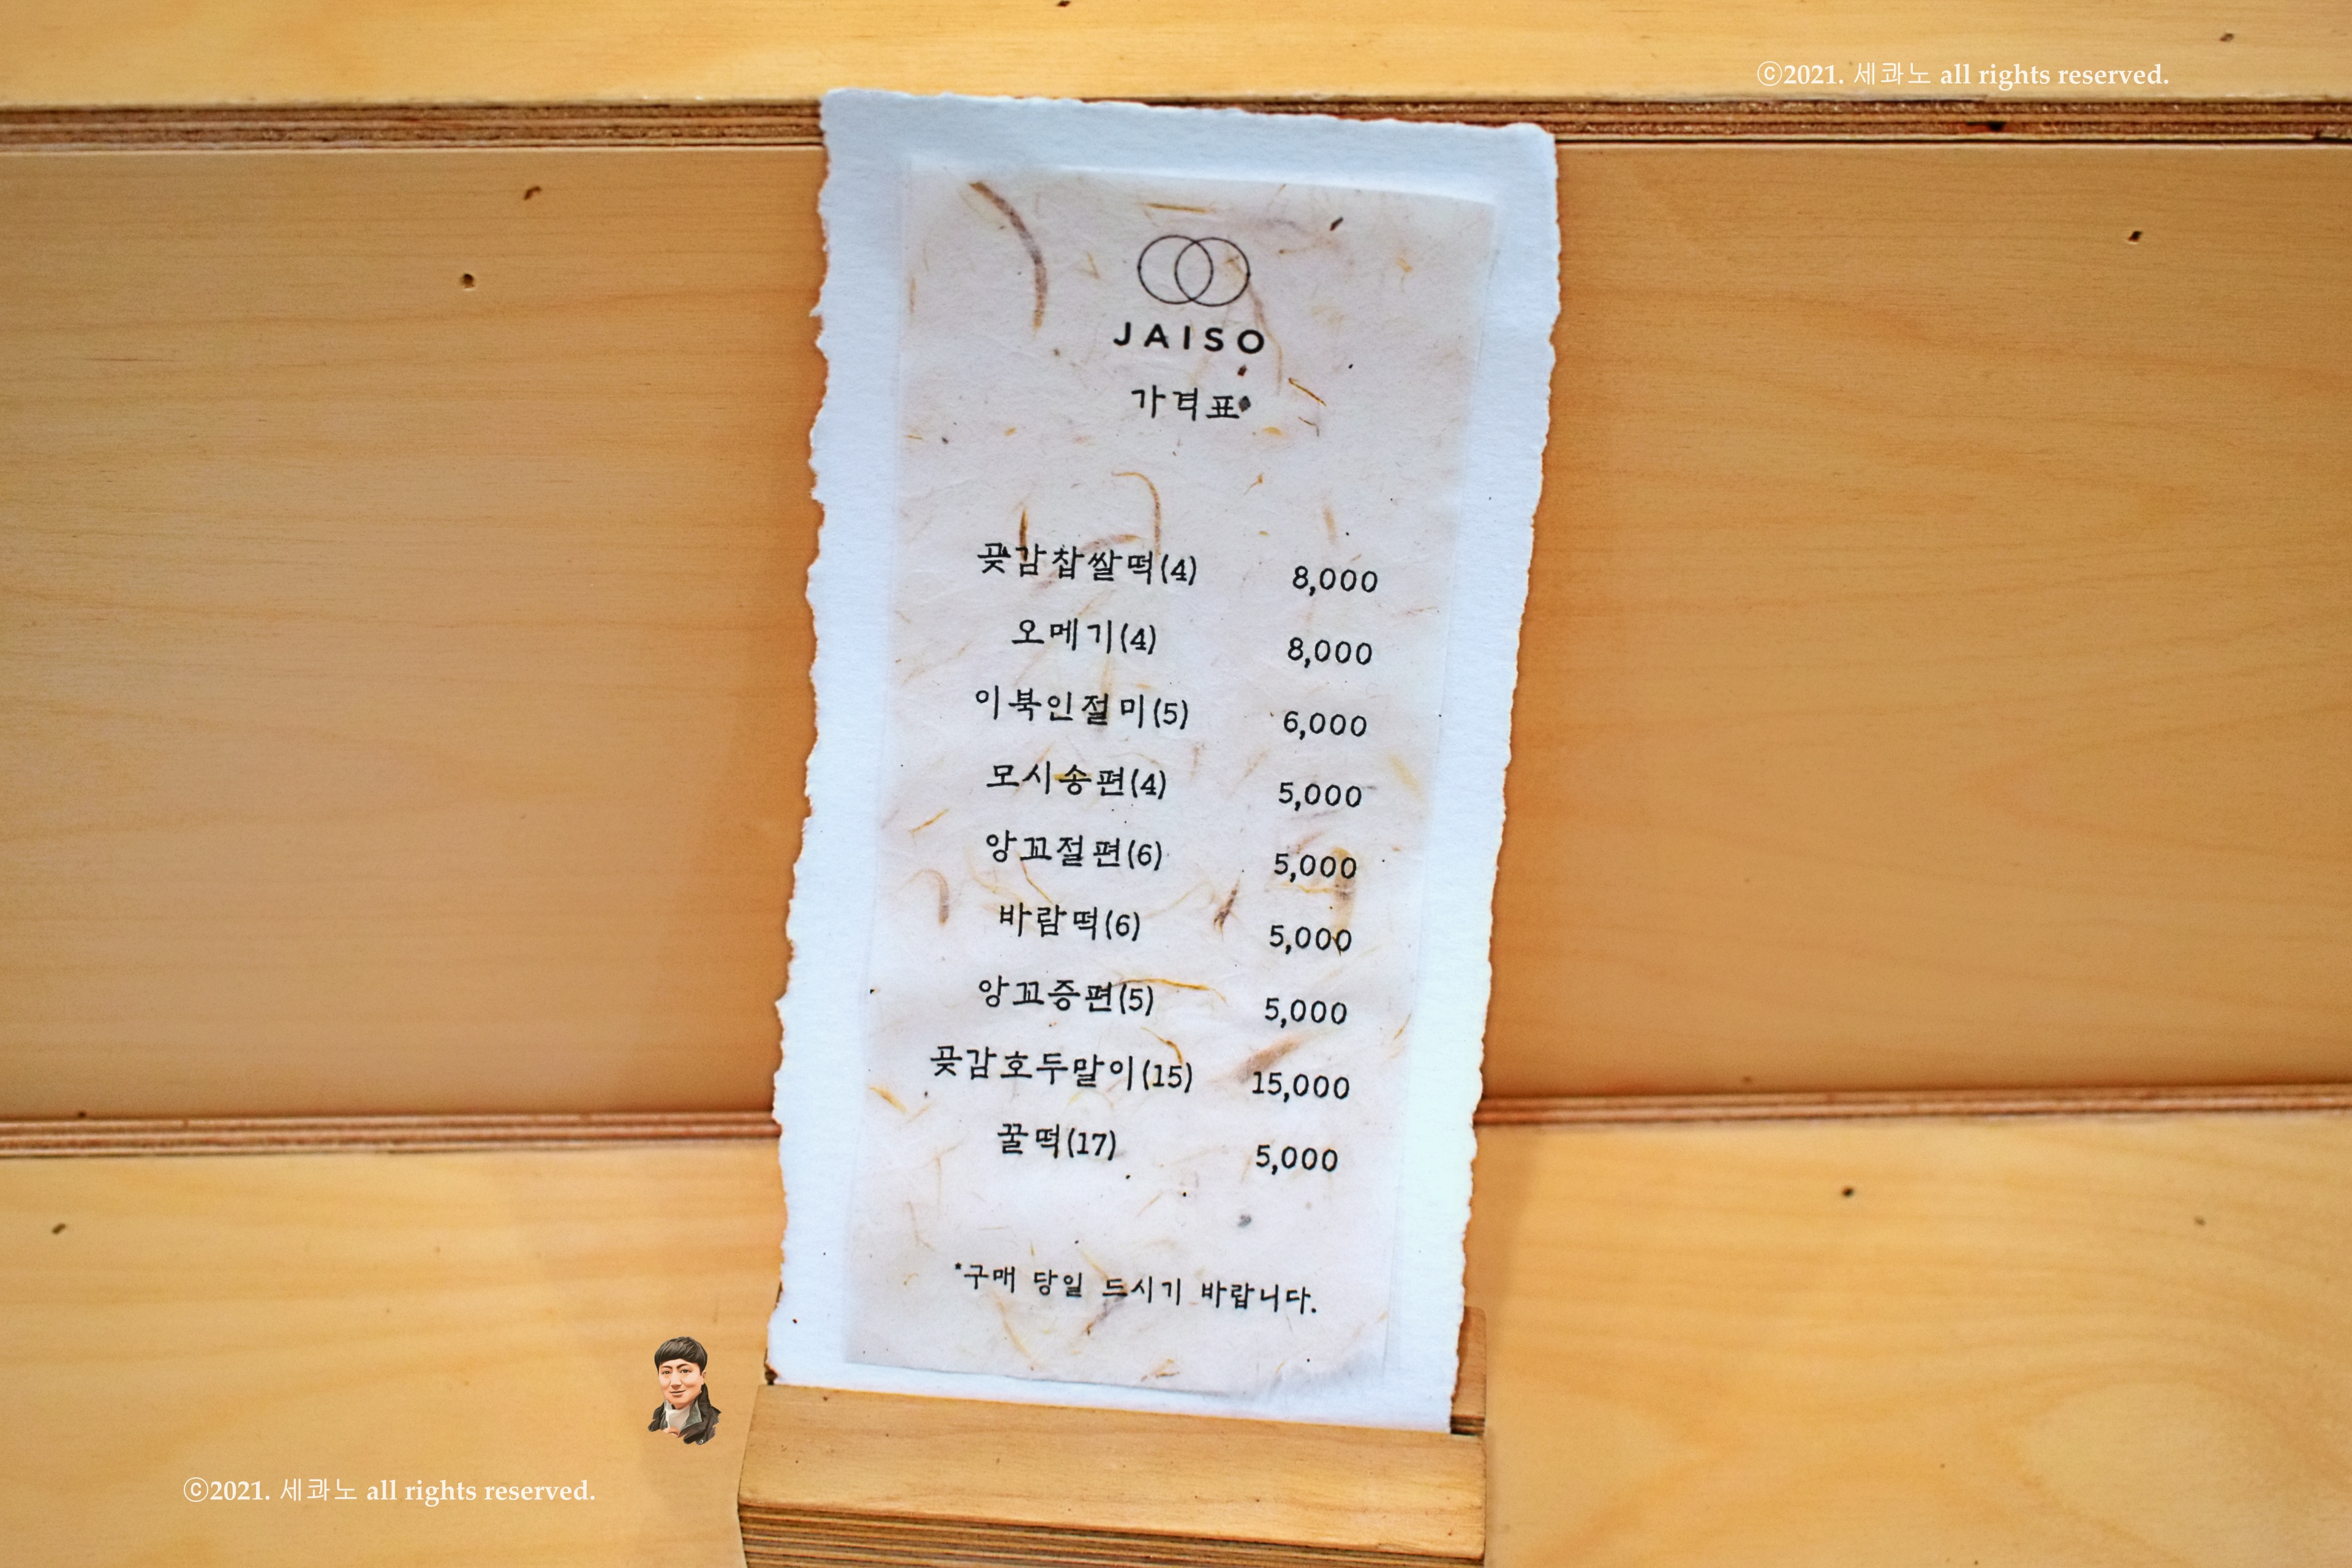 ⓒ2021. 세콰노 all rights reserved.
JAISO
가격표
곶감찹쌀떡(4) 8,000
오메기(4) 8,000
이북인절미(5) 6,000
모시송편(4) 5,000
앙꼬절편(6) 5,000
바람떡(6) 5,000
앙꼬증편(5) 5,000
곶감호두말이(15) 15,000
꿀떡(17) 5,000
*구매 당일 드시기 바랍니다.
ⓒ2021. 세콰노 all rights reserved.